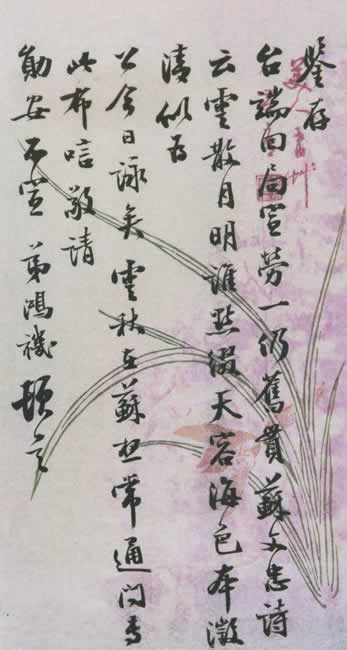 鑒存
台端回局宣勞一仍舊貫蘇文忠詩
云雲散月明誰點綴天容海色本澂
清似為
公今日詠矣雲秋在蘇想常通問專
此布唁敬請
勛安不宣 弟鴻禨頓首